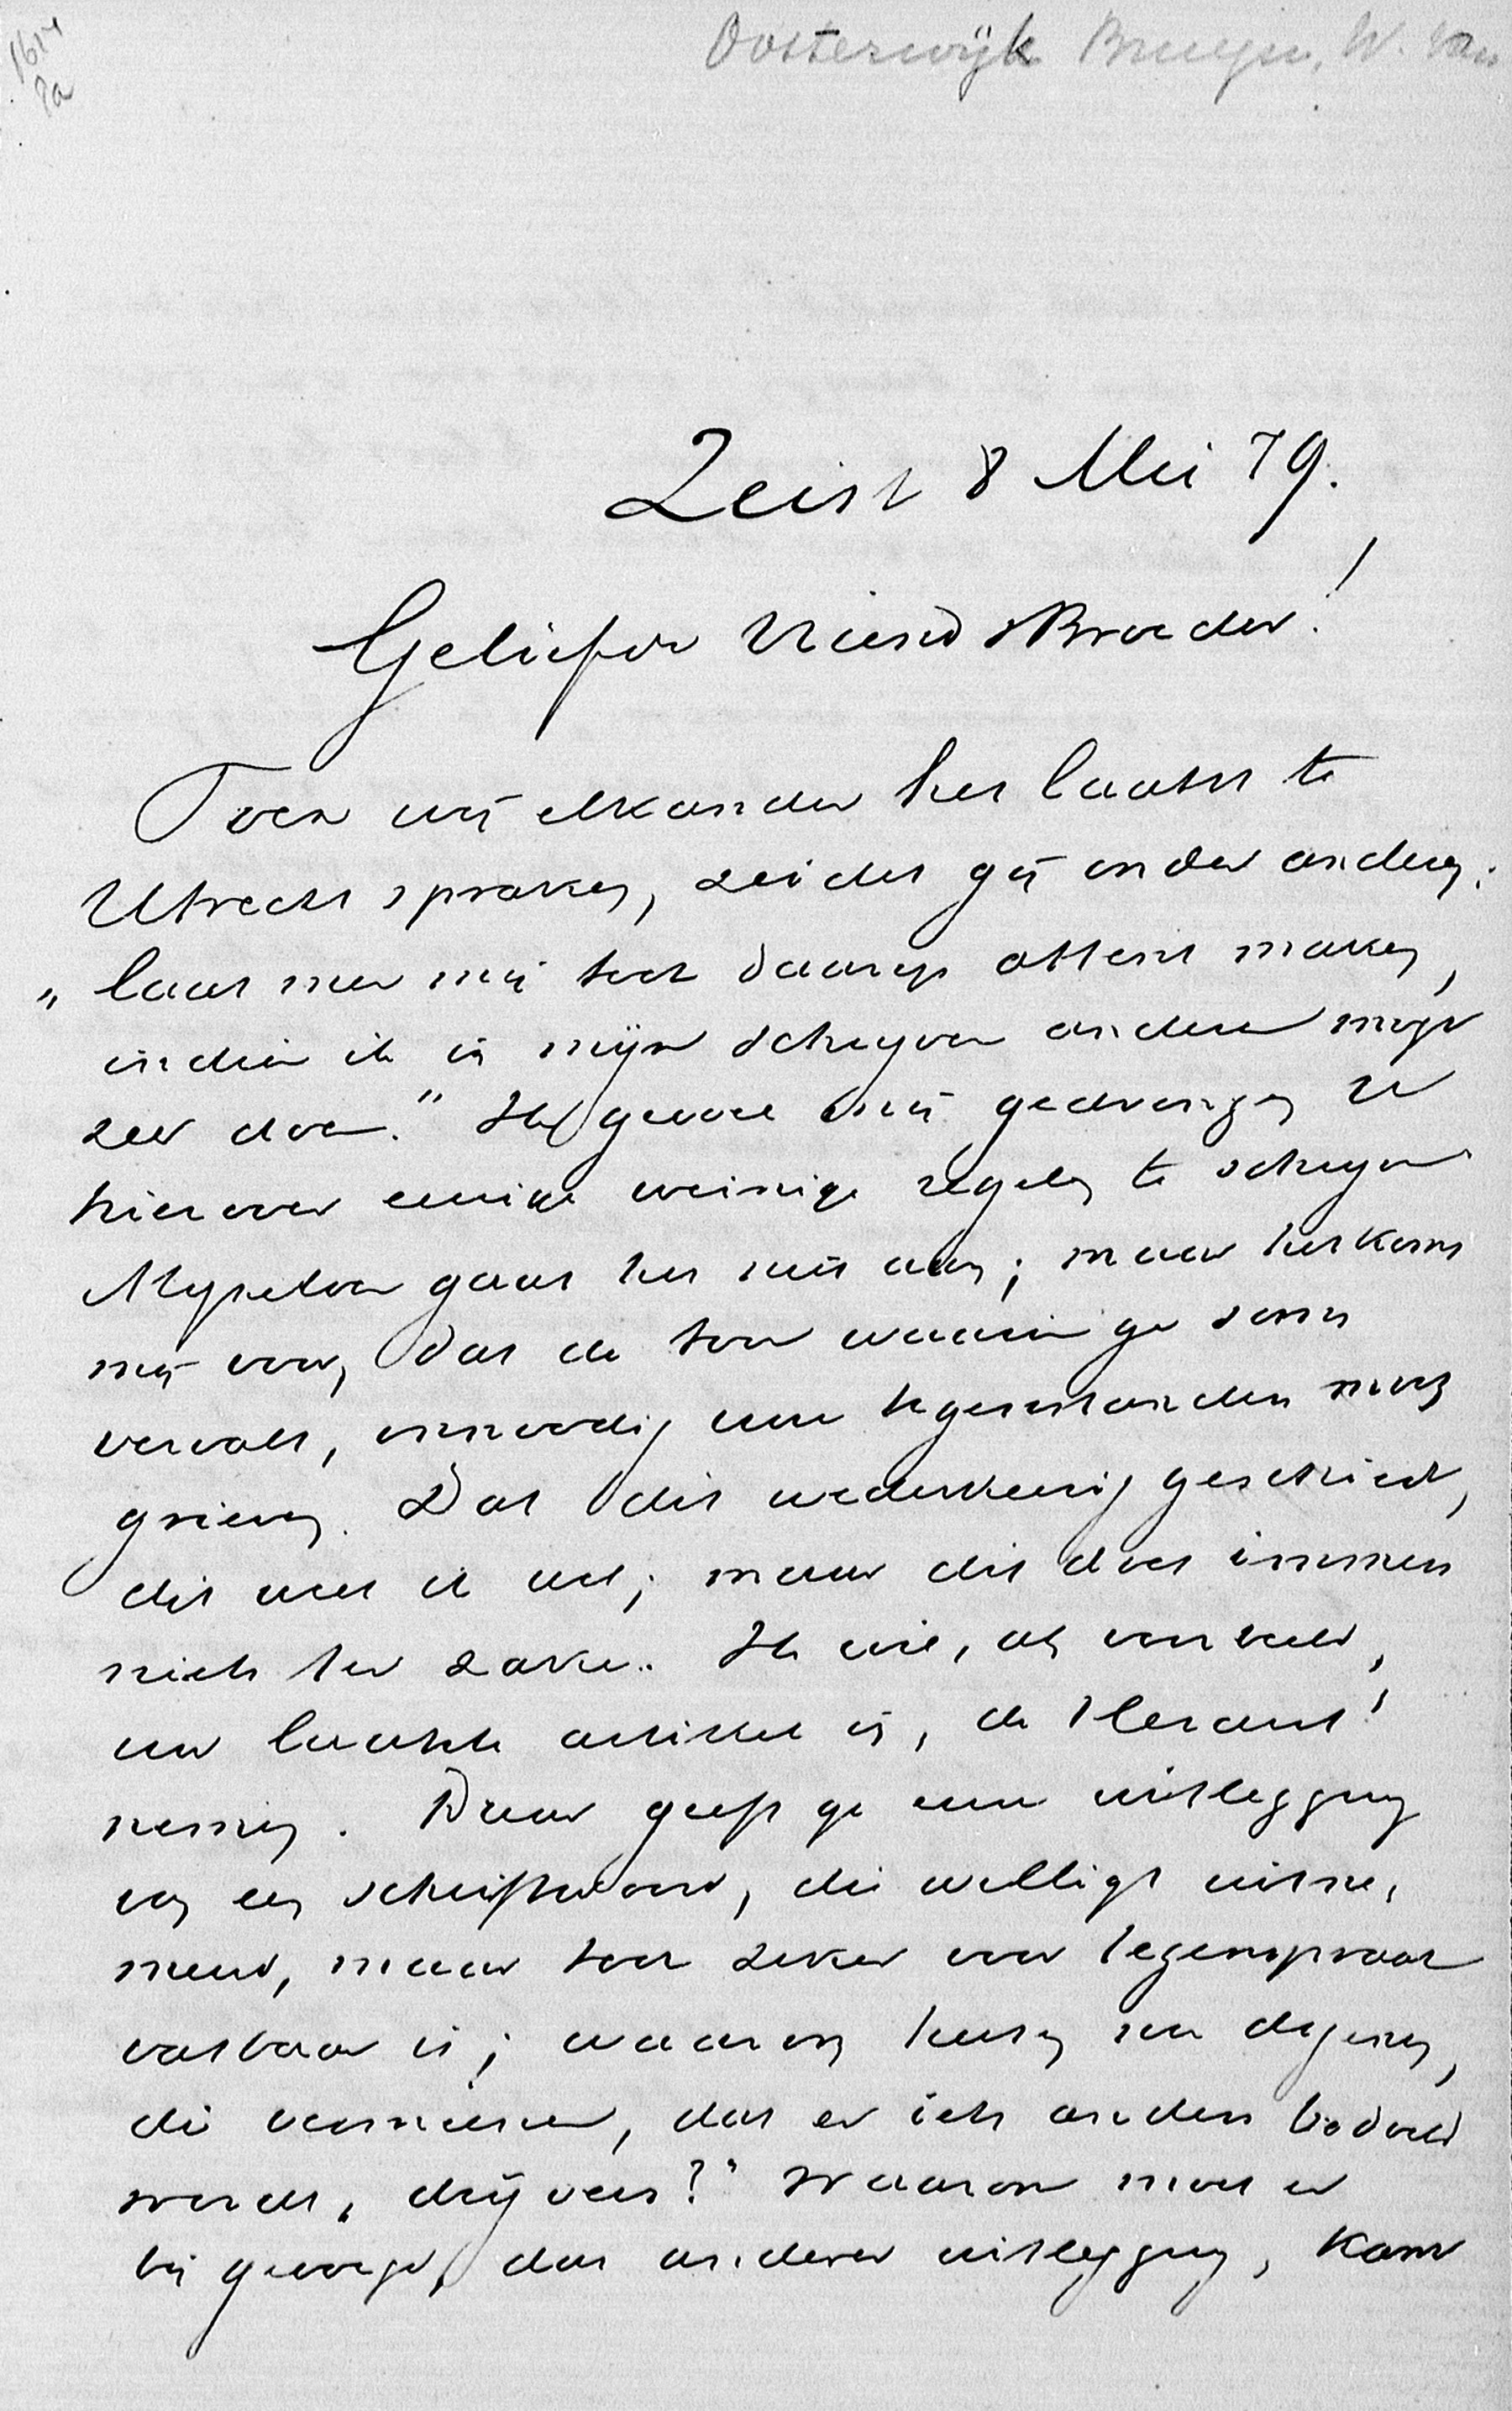 1614
2a
Oosterwijk Bruyn, W. van
Zeist 8 Mei 79.
Geliefde Vriend & Broeder!
Toen wij elkander het laatst te
Utrecht spraken, zeidet gij onder anderen:
„laat men mij toch daarop attent maken,
indien ik in mijn schrijven anderen mogt
zeer doen." Ik gevoel mij gedrongen U
hierover eenige weinige regelen te schrijven
Mijzelven gaat het niet aan; maar het komt
mij voor, dat de toon waarin ge soms
vervalt, onnoodig uwe tegenstanders moet
grieven. Dat dit wederkeerig geschiedt,
dit weet ik wel; maar dit doet immers
niets ter zake. Ik wil, als voorbeeld,
uw laatste artikel in „de Heraut"
nemen. Daar geeft ge eene uitlegging
van een schriftwoord, die welligt uitne,
mend, maar toch zeker voor tegenspraak
vatbaar is; waarom heeten nu degenen,
die meenen, dat er iets anders bedoeld
wordt, „drijvers?" Waarom moet er
bij gevoegd, dat andere uitlegging, kant